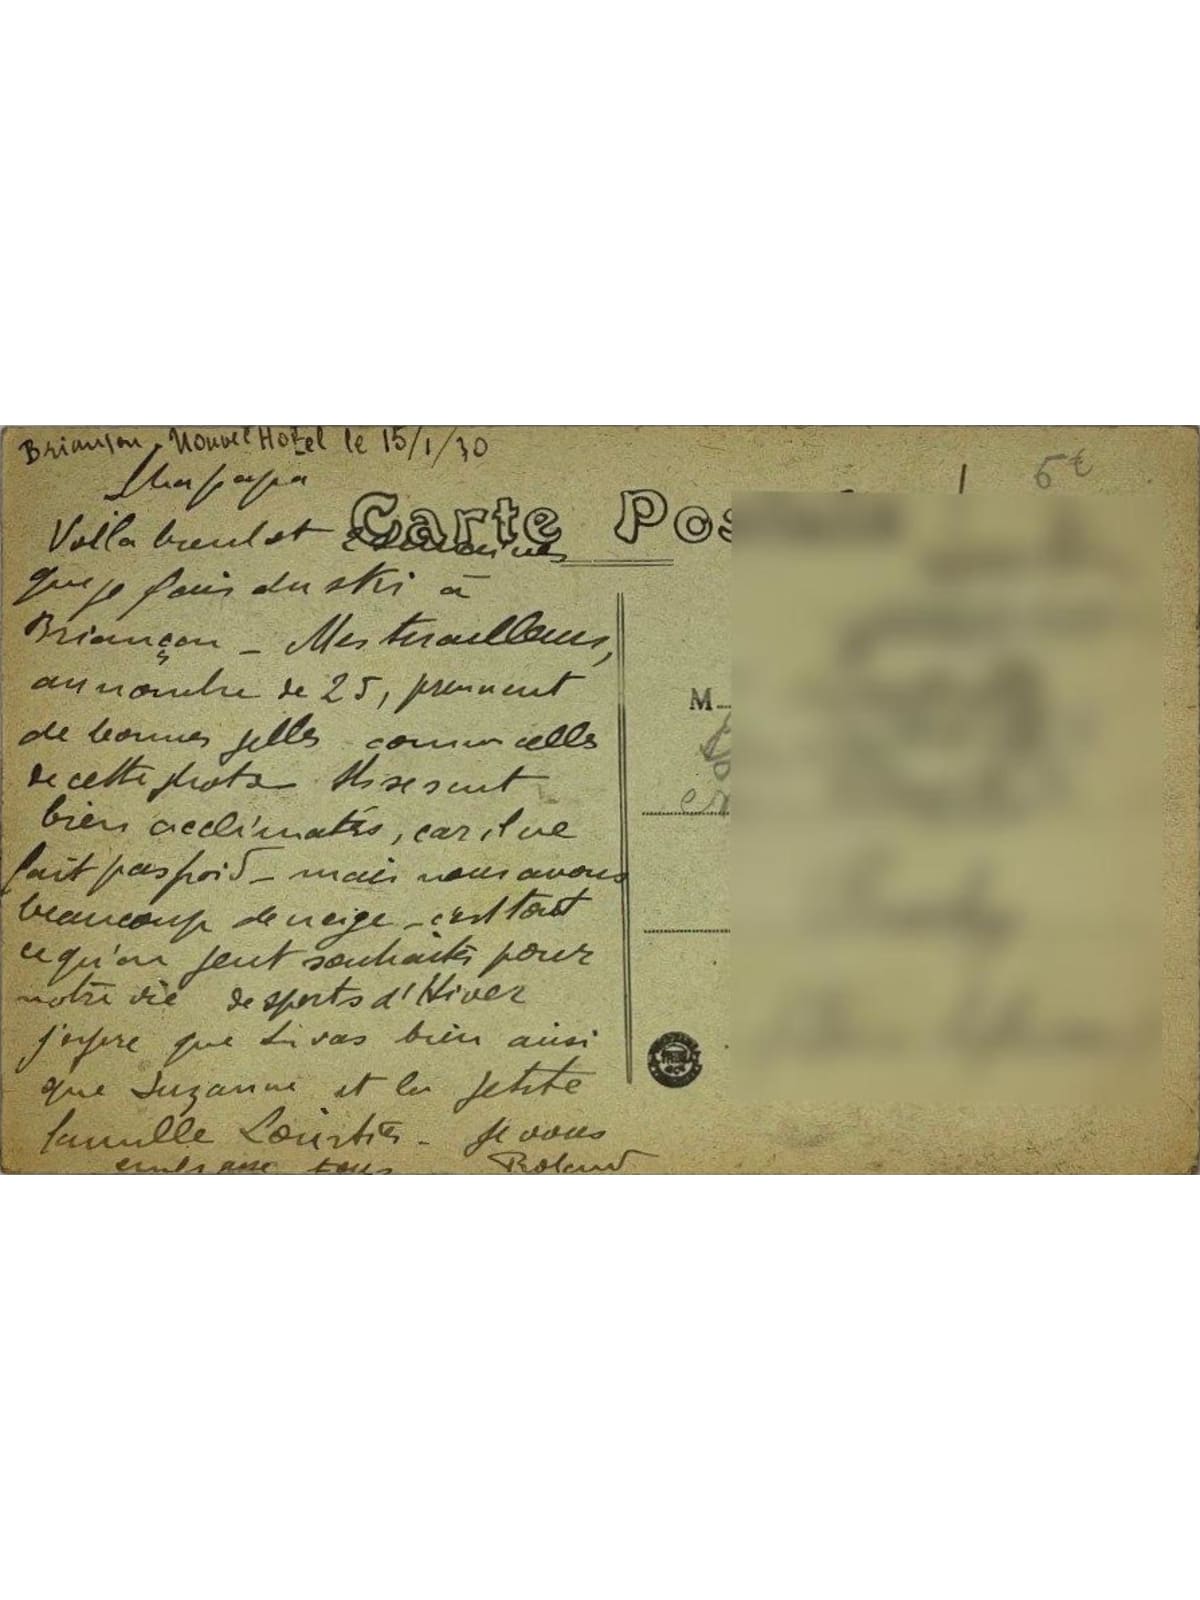 Briançon, Nouvel Hotel le 15/1/30
papa
Carte Pos
5€
Voilà bientot 2 semaines
que je fais du ski à
Briançon - Mes tirailleurs,
au nombre de 25, prennent
de bonnes pelles comme celles
de cette photo Ils se sont
bien acclimatés, car il ne
fait pas froid - mais nous avons
beaucoup de neige - c'est tout
ce qu'on peut souhaiter pour
notre vie de sports d'Hiver
j'espere que tu vas bien ainsi
que Suzanne et la petite
famille - Je vous
embrasse tous Roland
M